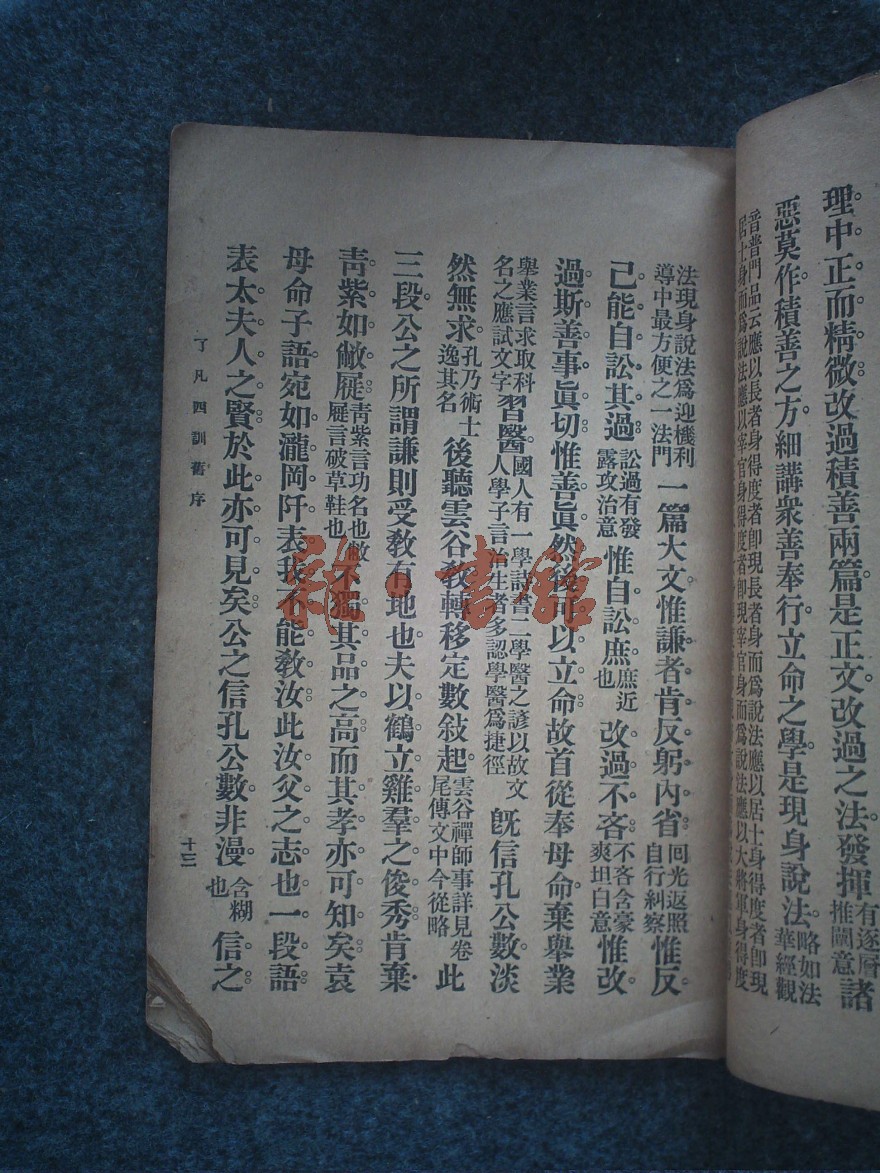 理中正而精微改過積善兩篇是正文改過之法發揮有逐層推闡意諸
惡莫作積善之方細講衆善奉行立命之學是現身說法略如法華經觀
音普門品云應以長者身得度者卽現長者身而爲說法應以居士身得度者卽現
居士身而爲說法應以宰官身得度者卽現宰官身而爲說法應以大將軍身得度
法現身說法爲迎機利導中最方便之一法門一篇大文惟謙者肯反躬內省囘光返照自行糾察惟反
己能自訟其過訟過有發露攻治意惟自訟庶庶近也改過不吝不吝含豪爽坦白意惟改
過斯善事眞切惟善眞然後可以立命故首從奉母命棄舉業
舉業言求取科名之應試文字習醫國人有一學詩書二學醫之諺以故文人學子言治生者多認學醫爲捷徑旣信孔公數淡
然無求孔乃術士逸其名後聽雲谷教轉移定數敍起雲谷禪師事詳見卷尾傳文中今從略此
三段公之所謂謙則受敎有地也夫以鶴立雞羣之俊秀肯棄
靑紫如敝屣靑紫言功名也敝屣言破草鞋也不獨其品之高而其孝亦可知矣袁
母命子語宛如瀧岡阡表我不能敎汝此汝父之志也一段語
表太夫人之賢於此亦可見矣公之信孔公數非漫含糊也信之
了凡四訓舊序
十三
雜·書館